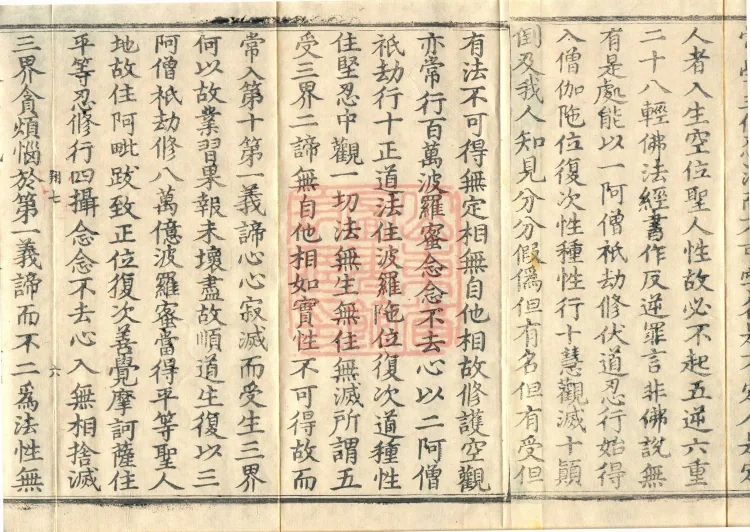 人者入生空位聖人性故必不起五逆六重
二十八輕佛法經書作反逆罪言非佛說無
有是處能以一阿僧祇劫修伏道忍行始得
入僧伽陁位復次性種性行十慧觀滅十顚
倒及我人知見分分假僞但有名但有受但
有法不可得無定相無自他相故修護空觀
亦常行百萬波羅蜜念念不去心以二阿僧
祇劫行十正道法住波羅陁位復次道種性
住堅忍中觀一切法無生無住無滅所謂五
受三界二諦無自他相如實性不可得故而
常入第十第一義諦心心寂滅而受生三界
何以故業習果報未壞盡故順道生復以三
阿僧祇劫修八萬億波羅蜜當得平等聖人
地故住阿毗跋致正位復次善覺摩訶薩住
平等忍修行四攝念念不去心入無相捨滅
翔七 六
三界貪煩惱於第一義諦而不二爲法性無